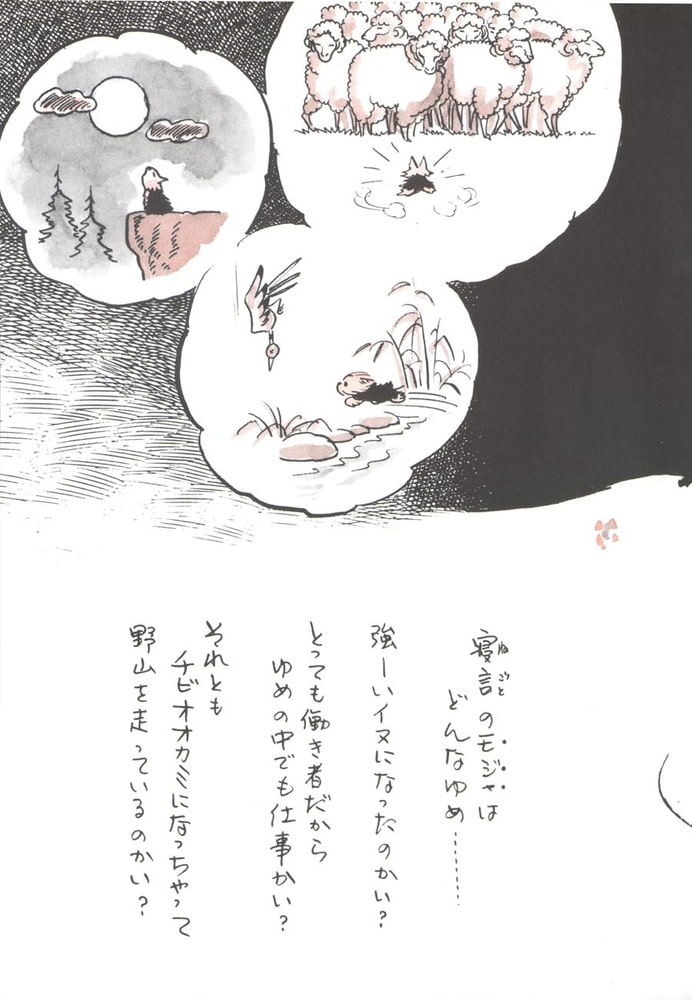 寝言のモジャは
どんなゆめ………
強ーいイヌになったのかい?
とっても働き者だから
ゆめの中でも仕事かい?
それとも
チビオオカミになっちゃって
野山を走っているのかい?